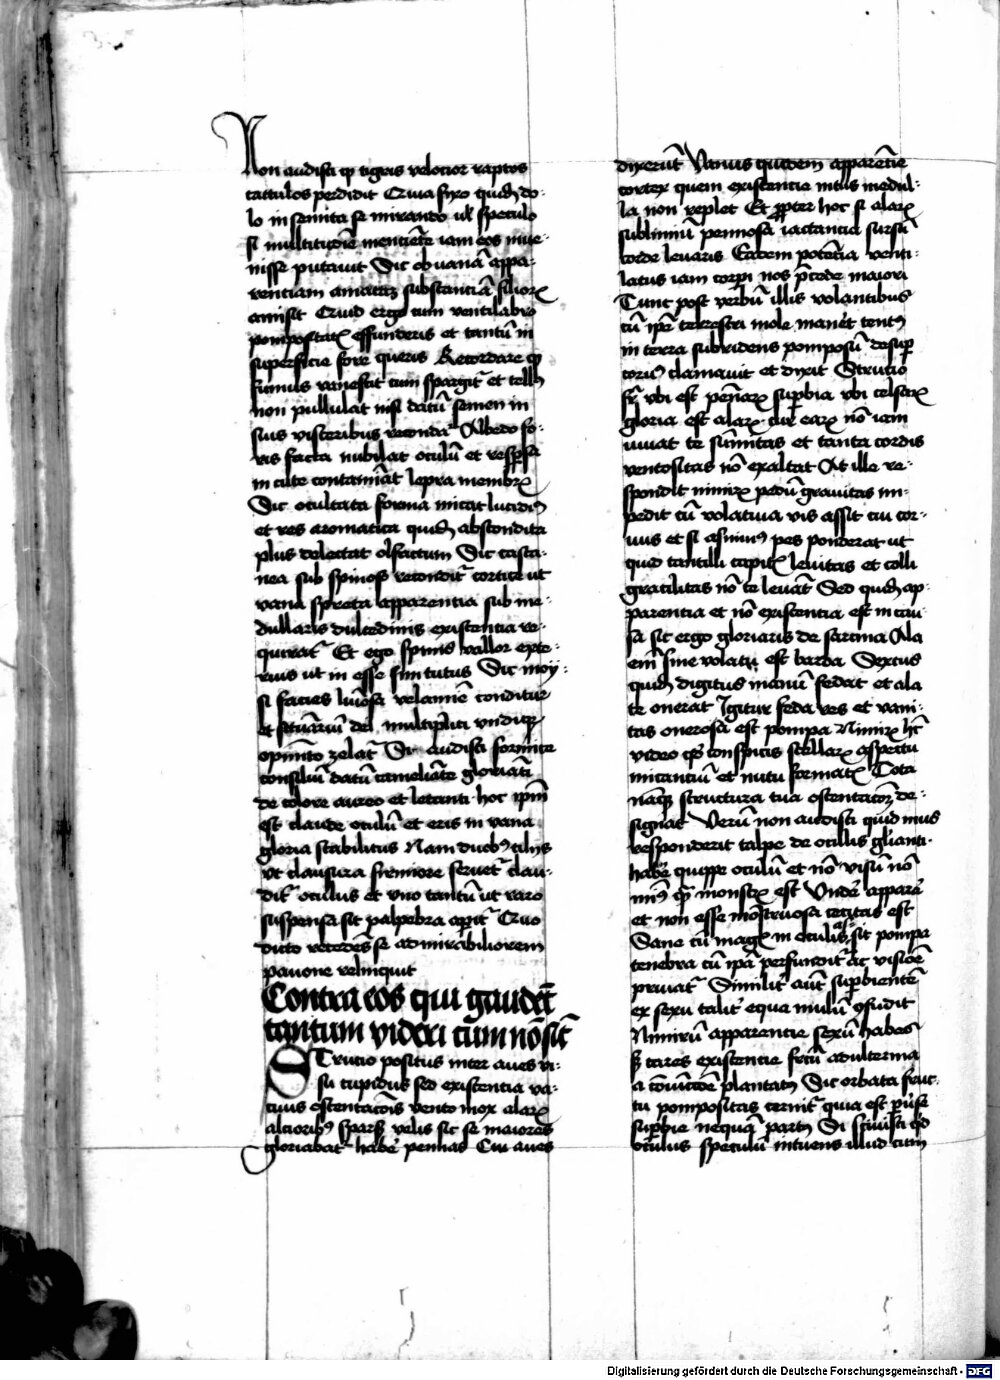 Non audisti qͥ tigris velocior raptos
cattulos perdidit Cuia fixo quidē do-
lo in semita se mirando vl' speculo
si multitudīe menciēte iam eos inue-
nisse putauit Sic ob vanā appa-
renciam amatrix substanciā filioꝝ
amisit Quid ergo cum ventilabro
effunderis et tantū in
superficie fore queris Recordare ꝙ
fumus vanescit cum spargit᷑ et tellꝰ
non pullulat nisi datū semen in
suis visceribus recondat᷑ Albedo fo-
ris facta nubilat oculū et respersa
in cute contamīat lepra membrꝝ
Sic occultata forma micat lucidiꝰ
et res aromatica quidē abscondita
plus delectat olfactum Sic casta-
nea sub spinoso recondit᷑ cortice ut
vana spreta apparencia sub me-
dullaris dulcedinis existencia re-
quirat᷑ Et ego spinis vallor exte-
rius ut in esse sim tutus Sic moy-
si facies velamīe conditur
et dei multiplici vndiqꝫ
opimēto zelat᷑ Sic audisti formice
consiliū datū cameliōte gloriāti
de colore aureo et letanti hoc ipm̄
est claude oculū et eris in vana
gloria stabilitus Nam duobꝰ ciliis
ut clausura firmiore seruet᷑ clau-
dit᷑ oculus et vno tantū ut raro
suspensa sit palpebra aperit᷑ Quo
dicto recedēs se admirabiliorem
pauone relinquit
Contra eos qui gaudēt
tantum videri cum nō sīt
Strucio positus inter aues vi-
su cupidus sed existencia va-
cuus ostentacōis vento mox alarꝝ
altioribꝰ sparsꝭ velis sic se maiores
gloriabat᷑ habe᷑ pennas Cui aues
dixerūt Vanus quidem apparēcie
cortex quem existencia intus medul-
la non replet Et ꝓpter hoc si alarꝝ
sublimiū pennosa iactancia sursū
corde leuaris Eadem potēcia venti-
latus iam corpi nos p̄cede maiori
Tunc post verbū illis volantibus
cū ipē terrestri mole manēt tentꝰ
in terra subridens pomposū desup
coruꝰ clamauit et dixit Strucio
fr̄ vbi est pēnarꝝ supbia vbi celsarꝝ
gloria est alarꝝ cur earꝝ nō iam
iuuat te sūmitas et tanta cordis
ventositas nō exaltat At ille re-
spondit nimirꝝ pedū grauitas im-
pedit cū volatiua vis assit cui cor-
uus et si asininꝰ pes ponderat ut
quid tantilli capitꝭ leuitas et colli
gracilitas nō te leuat Sed quidē ap-
parencia et nō existencia est in cau-
sa sic ergo gloriaris de sarcina Ala
enī sine volatu est barda Sextus
quidē digitus manū fedat et ala
te onerat Igitur feda res et vani-
tas onerosa est pompa Nimirꝝ hͦ
video qͦ conspicis stellarꝝ aspectu
micantiū et nutu formatꝝ Tota
nāqꝫ structura tua ostentacōꝫ de-
signat Verū non audisti quid mus
responderit talpe de ocillis gl'ianti-
habe᷑ quippe oculū et nō visū nō
minꝰ qͣm monstrꝝ est Vnde apparē
et non esse mōstruosa cecitas est
Sane cū magꝭ in oculis sit pompa
tenebra cū ipā perfundit᷑ ac visiōē
priuat᷑ Similit᷑ aūt supbientē
ex sexu talit᷑ equa mulū ꝯfudit
Nimirū apparencie sexū habes
sꝫ cares existencie fetū adulterina
a plantatꝰ Sic orbata fruc-
tu pompositas cernit᷑ quia est
supbie nequā partꝰ Si sciuisti qd
vitulus speculū intuens illud cum